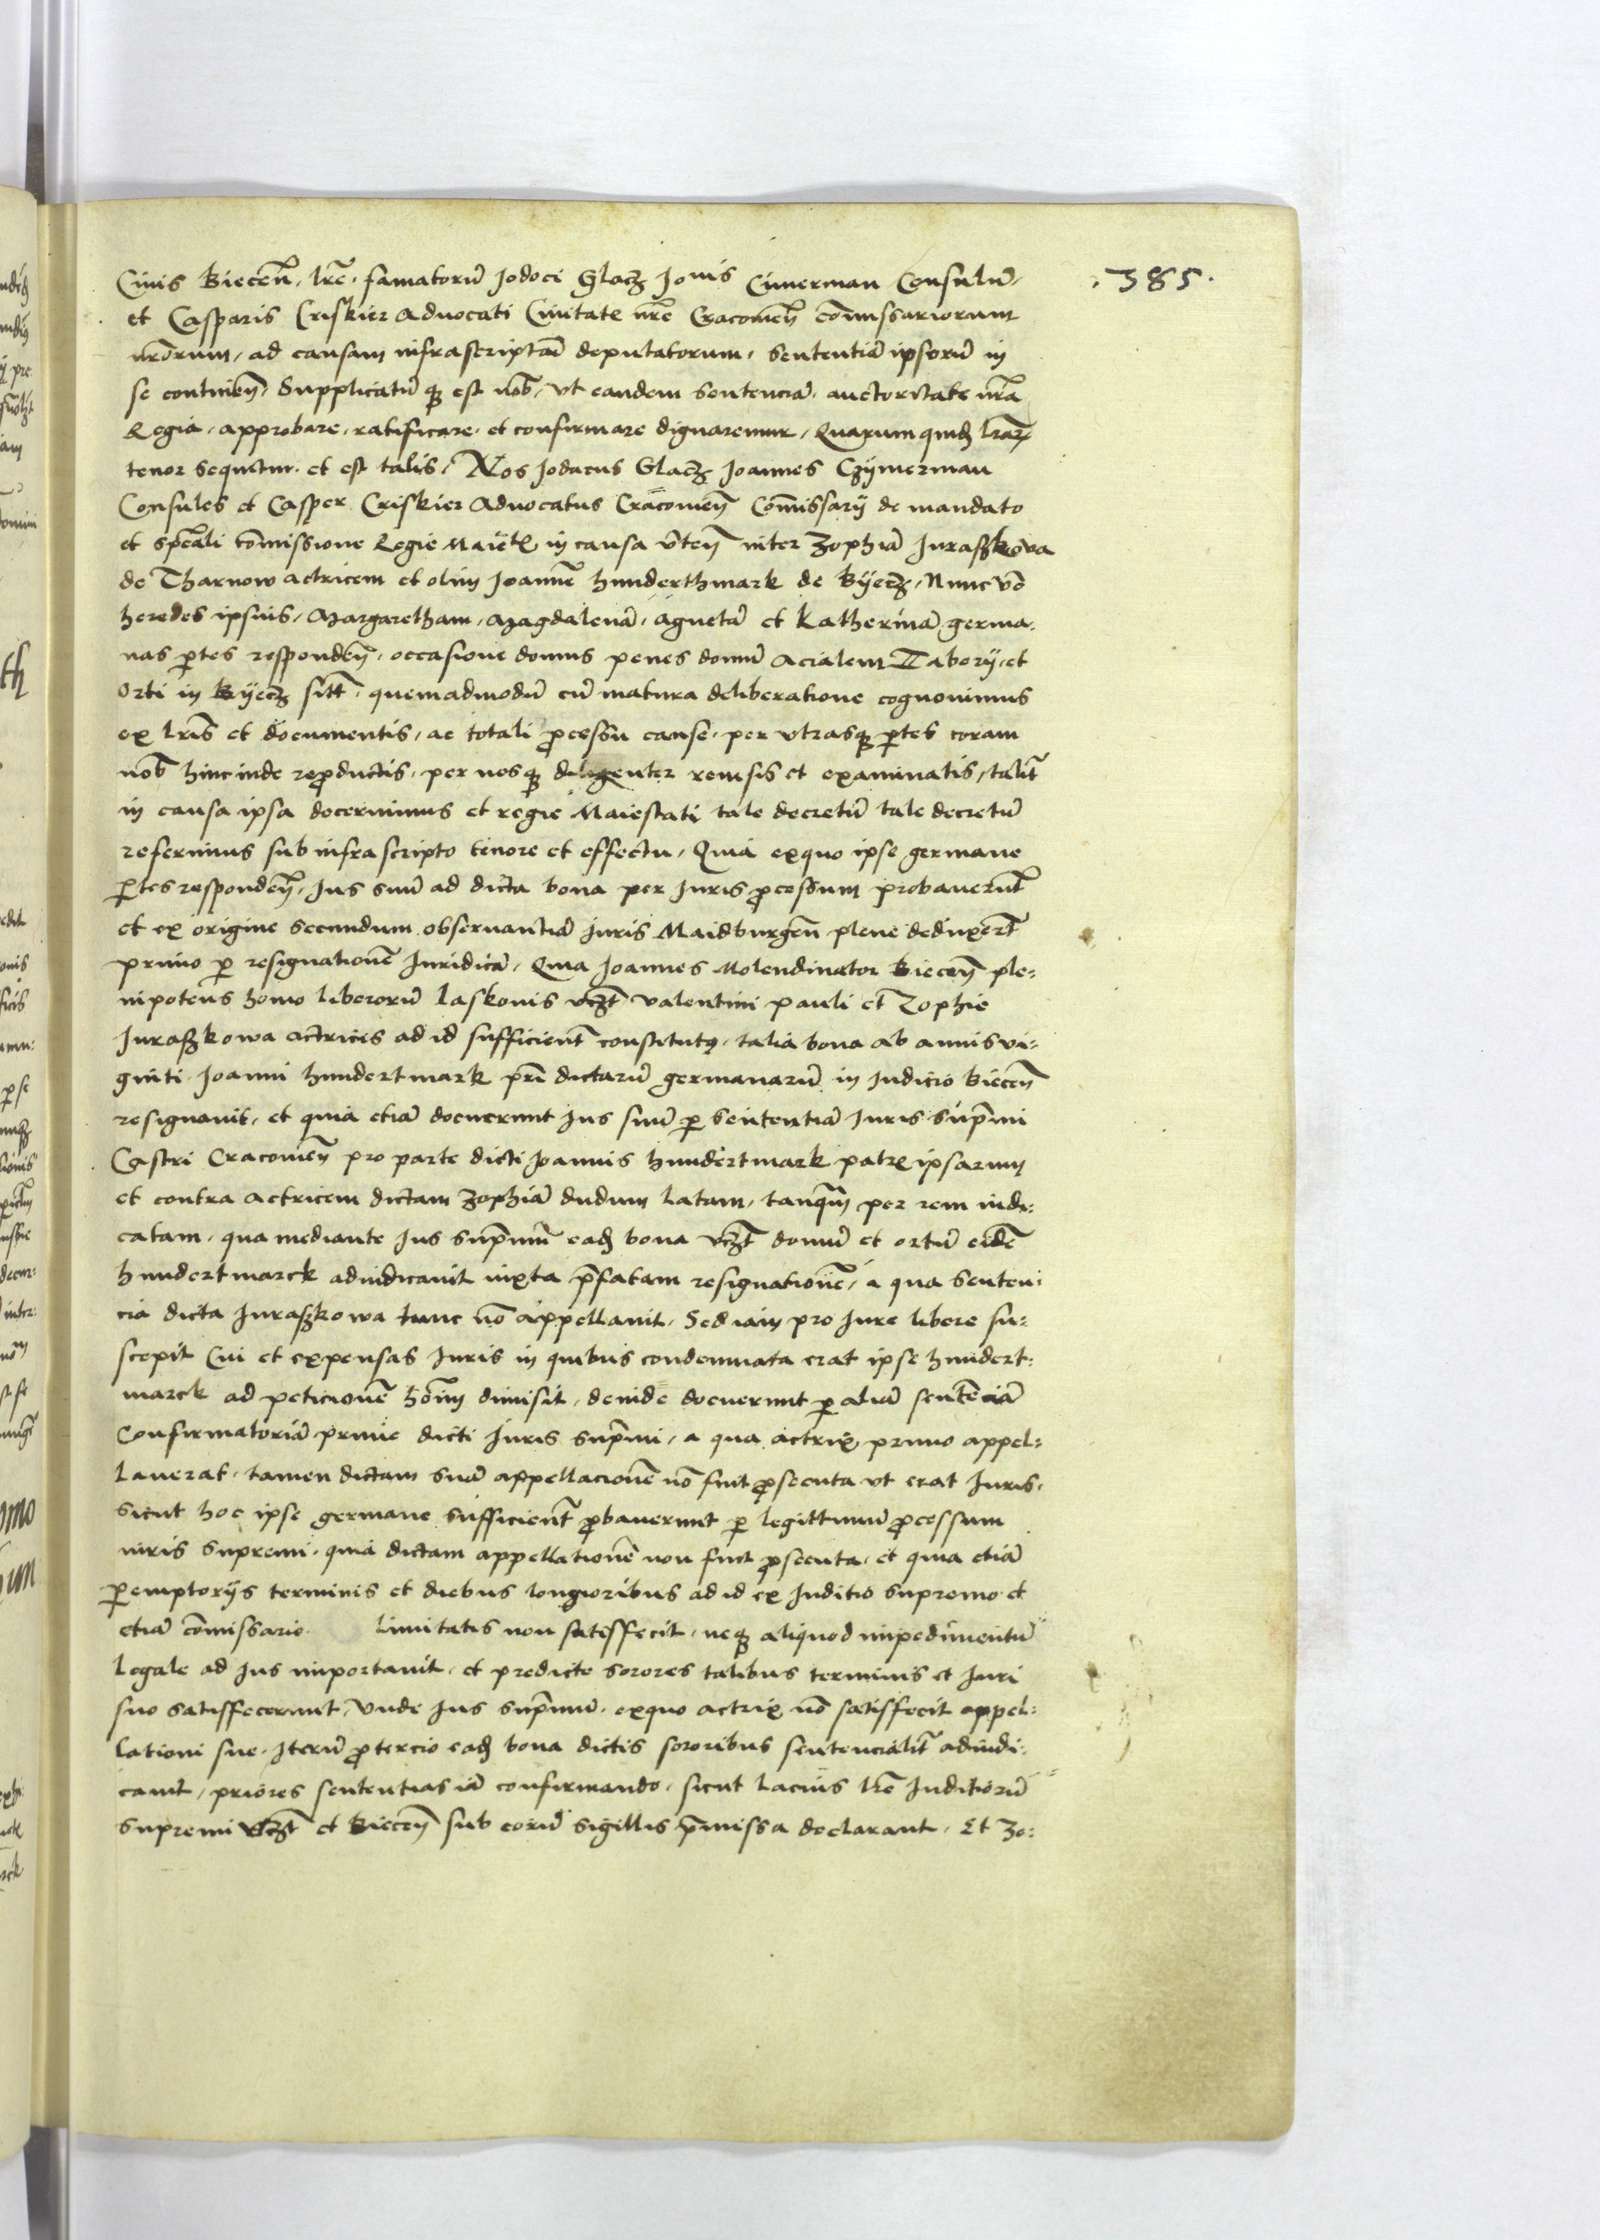 .385.
Civis Biecen̄. Lr̄e. famatorū Jodoci Glacz Jo^nis Cimerman Consulū.
et Casparis Criskier Advocati Civitate nr̄e Cracovien̄ com̄issariorum
nr̄orum, ad causam infrascriptā deputatorum, Sententiā ipsorū in
se continen̄. Supplicatū q3 est nob̄, ut eandem sentenciā. auctoritate nr̄a
Regia, approbare, ratificare, et confirmare dignaremur, Quarum quid3 lr̄ar̄
tenor sequitur. et est talis. Nos Jodacus Glacz Joannes Czymerman
Consules et Casper Criskier Advocatus Cracovien̄ Com̄issarij de mandato
et spec̄ali com̄issione Regie Maiēt̄ in causa v̄ten̄ inter Zophiā Juraszkowa
de Tharnow actricem et olim Joannē hunderthmark de Byecz, Nunc v̄o
heredes ipsius, Margaretham, Magdalenā, Agnetā et Katherinā germa,
nas p̄tes responden̄, occasione domus penes domū acialem Tabory, et
Orti in Byecz sitt̄, quemadmodū cū matura deliberatione cognovimus
ex lr̄is et documentis, ac totali p̄cessu cause, per utrasq3 p̄tes coram
nob̄ hinc inde rep̄ductis, per nosq3 diligenter revisis et examinatis, talit̄
in causa ipsa decernimus et regie Maiestati tale decretū tale decretū
referimus sub infra scripto tenore et effectu, Quia exquo ipse germane
p̄tes responden̄, Jus suū ad dicta bona per Juris p̄cessum probaverūt
et ex origine secundum observantiā Juris Maidburgen̄ plene deduxert̄
primo p̄ resignationē Juridicā, Quia Joannes Molendinator Biecen̄ ple:
nipotens homo liberorū Laskonis vcz̄t Valentini Pauli et Zophie
Juraszkowa actricis ad id sufficient̄ constitutq̨, talia bona ab annis vi:
ginti Joanni hundertmark pr̄i dictarū germanarū in Judicio Biecen̄
resignavit, et quia etiā docuerunt Jus suū p̄ sententiā Juris sup̄mi
Castri Cracovien̄ pro parte dicti Joannis hundertmark patr̄ ipsarum
et contra actricem dictam Zophiā dudum latam, tanq̄m per rem iudi:
catam, qua mediante Jus sup̄mū ead3 bona vcz̄t domū et ortū eidē
hundertmarck adiudicavit iuxta p̄fatam resignationē, a qua senten:
cia dicta Juraszkowa tunc nō appellavit, Sed iam pro Jure libere su:
scepit Cui et expensas Juris in quibus condemnata erat ipse hundert:
marck ad peticionē hom̄ dimisit, deinde docuerunt p̄ aliā sentēciā
Confirmatoriā prime dicti Juris sup̄mi, a qua actrix primo appel:
laverat, tamen dictam suā appellacionē nō fuit p̄secuta ut erat Juris,
sicut hoc ipse germane sufficient̄ p̄baverunt p̄ legittimū p̄cessum
iuris supremi, quia dictam appellationē non fuit p̄secuta, et quia etiā
p̄emptorijs terminis et diebus longioribus ad id ex Juditio supremo et
etiā com̄issario limitatis non satisffecit, neq3 aliquod impedimentū
legale ad Jus importavit, et predicte sorores talibus terminis et Juri
suo satisffecerunt, Unde Jus sup̄mū, exquo actrix nō satisffecit appel:
lationi sue, Iterū p̄ tercio ead3 bona dictis sororibus sentencialit̄ adiudi:
cavit, priores sententias iā confirmando, sicut lacius lr̄e Juditiorū
supremi vcz̄t et Biecen̄ sub eorū sigillis p̄missa declarant, Et Zo: